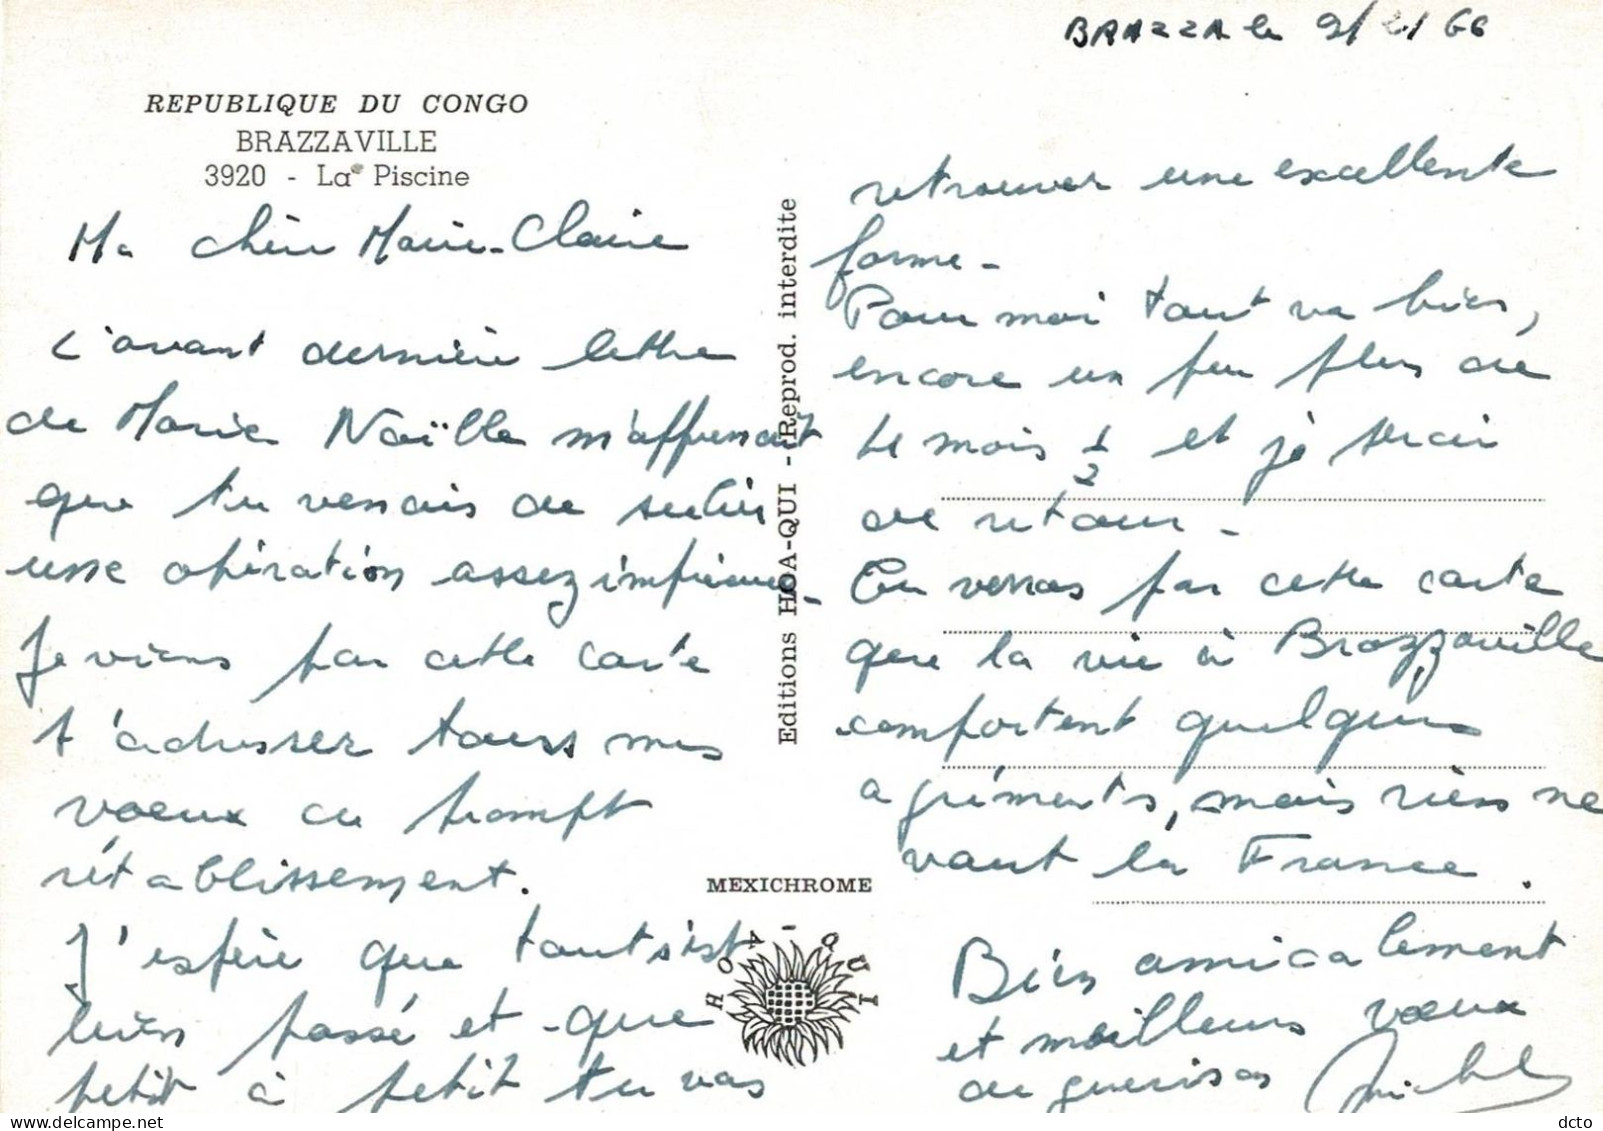 BRAZZA le 9/2/66
REPUBLIQUE DU CONGO
BRAZZAVILLE
3920 - La Piscine
Ma chère Marie-Claire
L'avant dernière lettre
de Marie Noëlle m'apprenait
que tu venais de subir
une opération assez imprévue -
Je viens par cette carte
t'adresser tous mes
voeux de prompt
rétablissement.
J'espère que tout s'est
bien passé et que
petit à petit tu vas
Editions HOA-QUI - Reprod. interdite
MEXICHROME
HOA-QUI
retrouver une excellente
forme -
Pour moi tout va bien,
encore un peu plus de
le mois 1/2 et je serai
de retour -
Tu verras par cette carte
que la vie à Brazzaville
comportent quelques
agréments, mais rien ne
vaut la France.
Bien amicalement
et meilleurs voeux
de guérison Michel
dcto